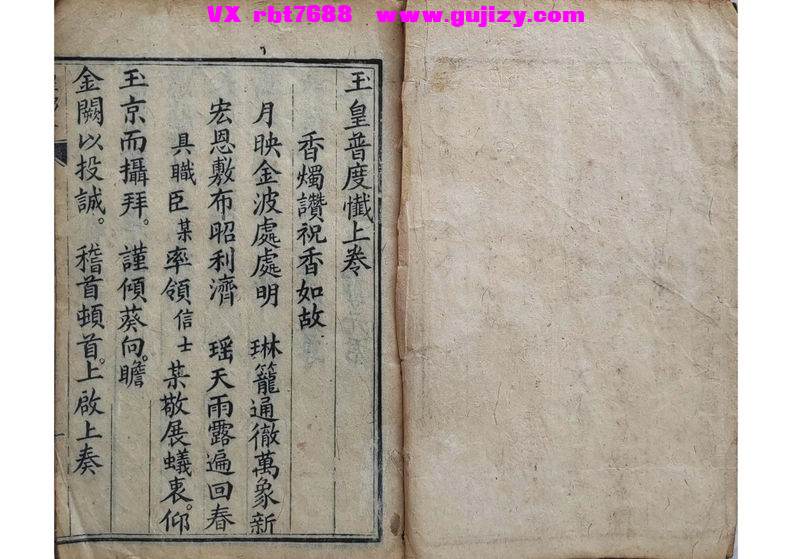 VX rbt7688 www.gujizy.com
玉皇普度懺上卷
香燭讚祝香如故
月映金波處處明 琳籠通徹萬象新
宏恩敷布昭利濟 瑶天雨露遍回春
具職臣某率領信士某敬展蟻衷。仰
玉京而攝拜。謹傾葵向。瞻
金闕以投誠。稽首頓首。上啟上奏